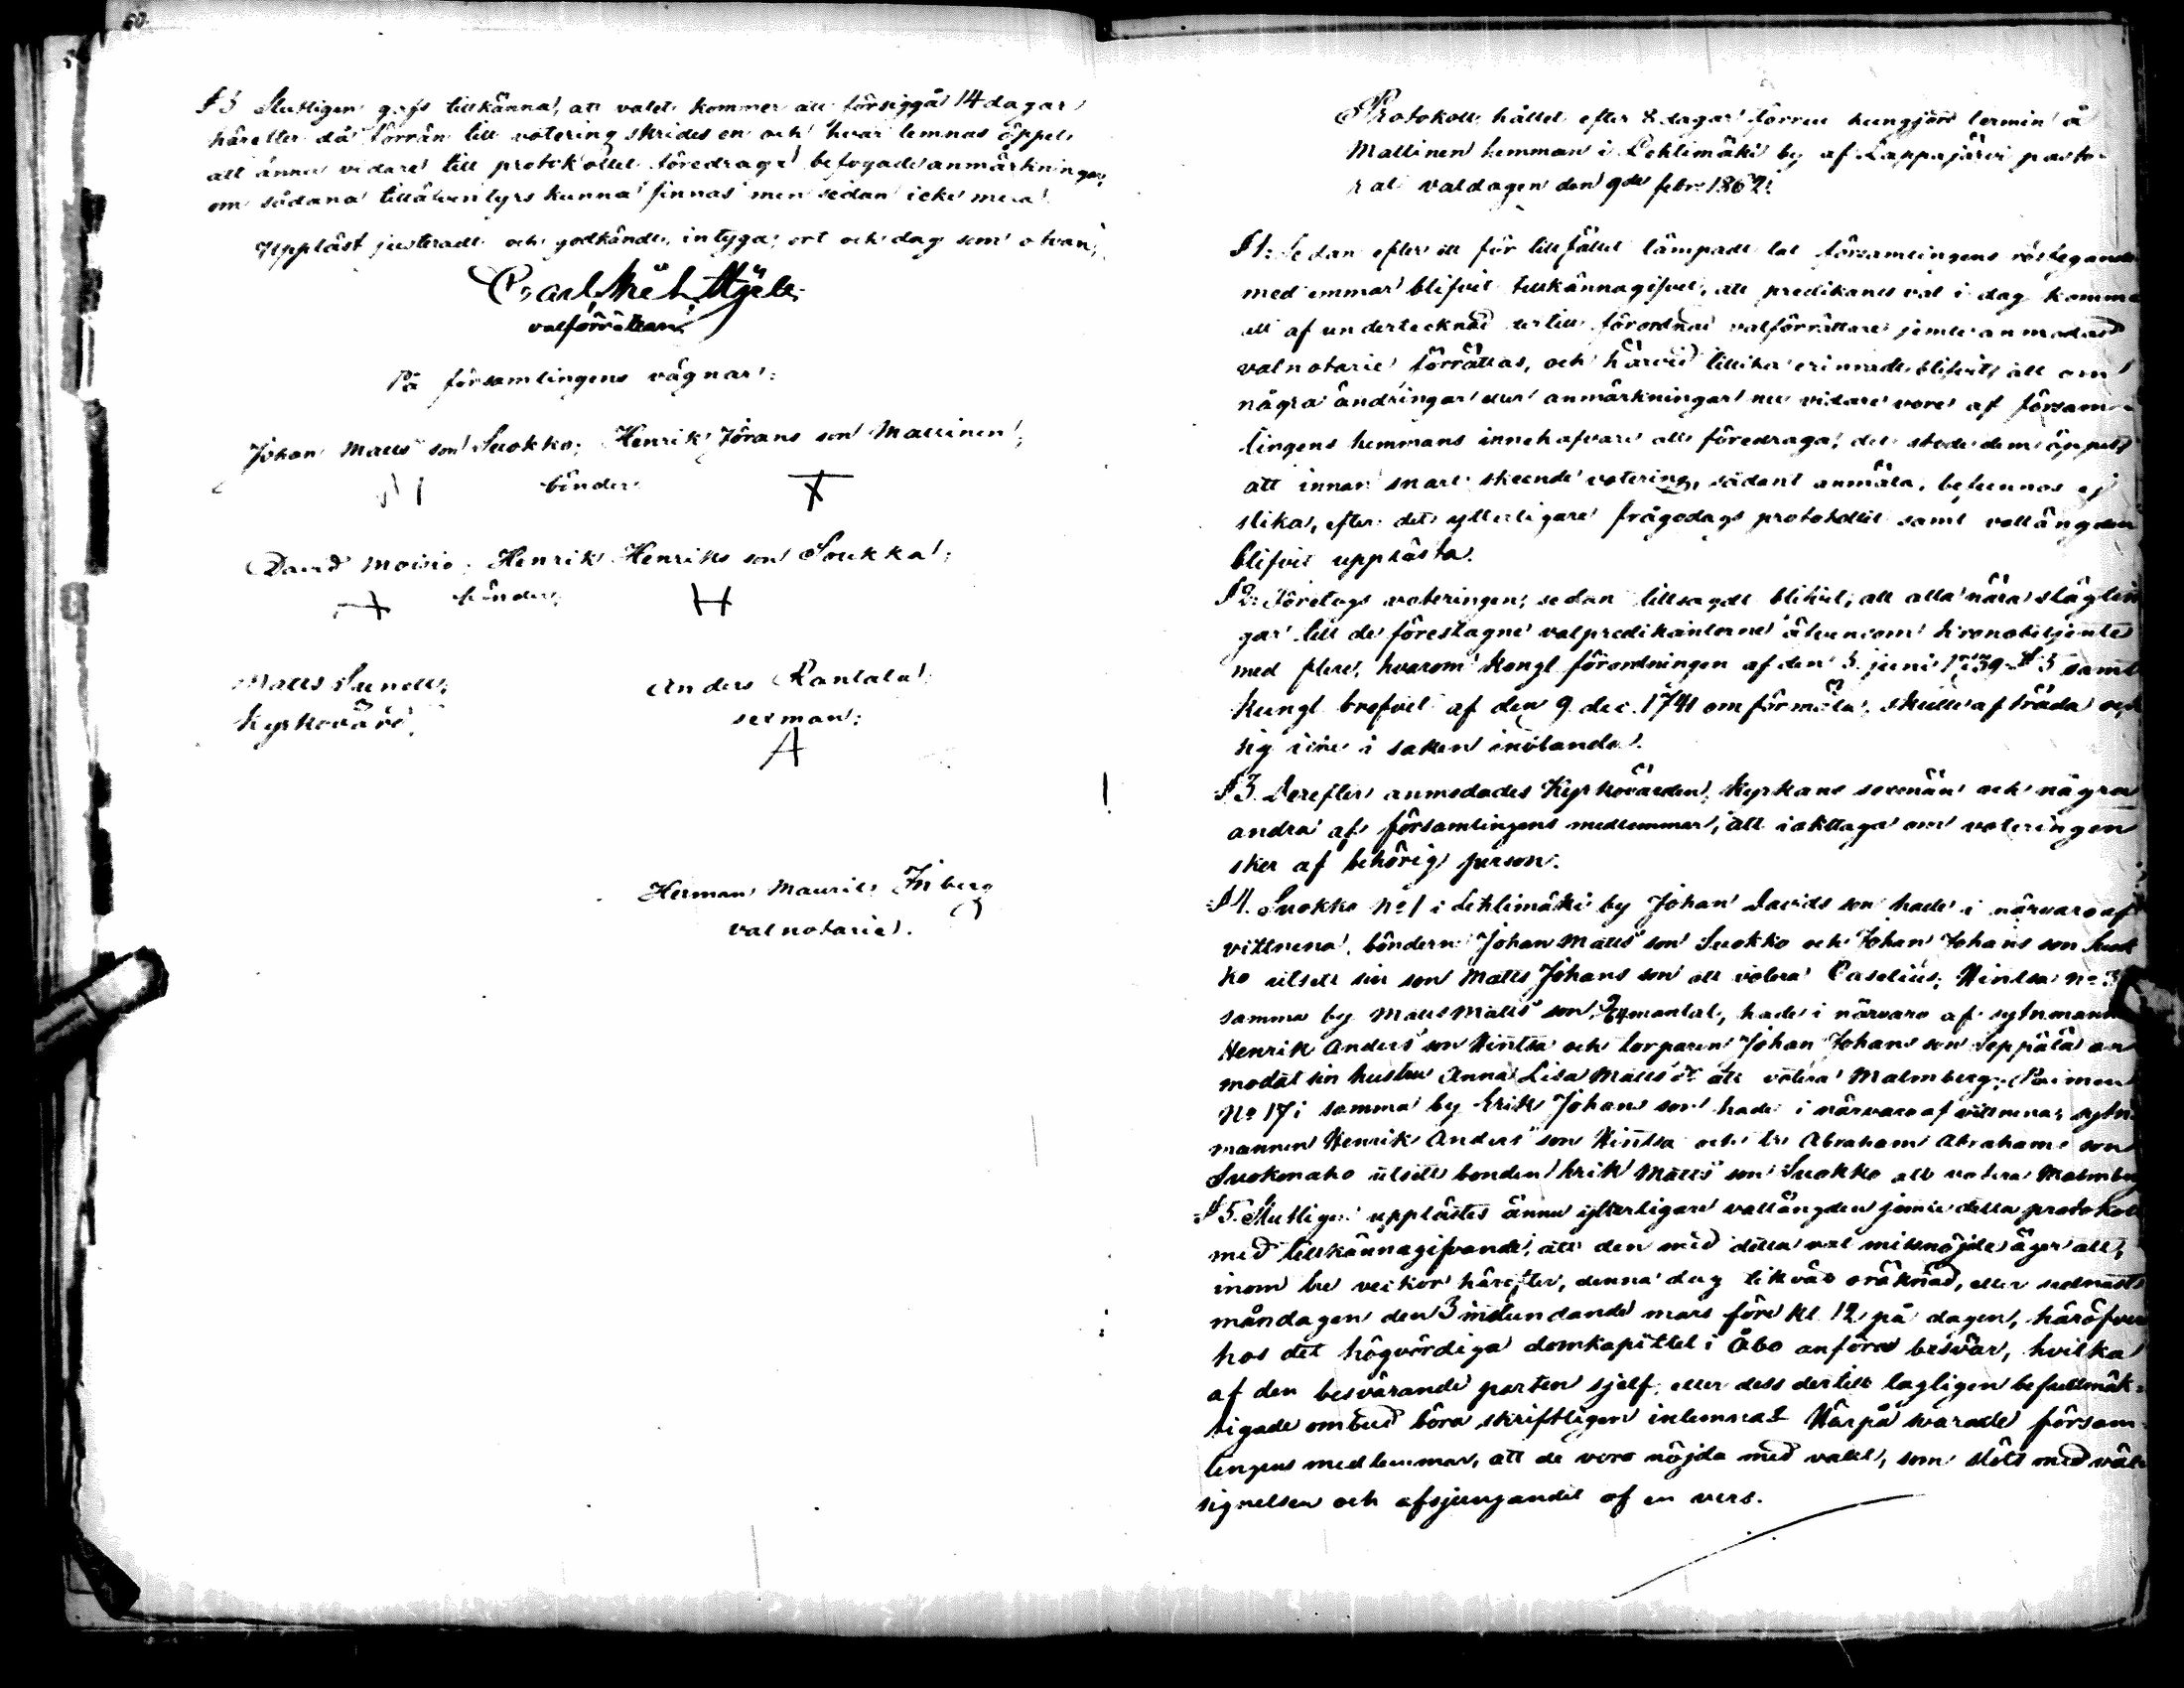 60.
§ 3 Slutligen gafs tillkänna, att valet kommer att försiggå 14 dagar
härefter då förrän till votering skrides en och hvar lemnas öppet
att ännu vidare till protokollet föredraga befogade anmärkningar,
om sådana tilläfventyrs kunna finnas men sedan icke mera.
Uppläst justeradt och godkändt, intyga; ort och dag som ofvan;
Carl
valförrättare.
På församlingens vägnar:
Johan Matts son Suokko; Henrik Jörans son Mattinen;
bönder.
David Moisio; Henrik Henriks son Soukka;
bönder;
Matts Sunell; Anders Rantala;
Kyrkovärd. sexman:
Herman Maurits Friberg
valnotarie.
Protokoll hållet efter 8 dagar förrut kungjord termin å
Mattinen hemman i Lehtimäki by af Lappajärvi pasto-
rat valdagen den 9de febr. 1862.
§ 1: Sedan efter ett för tillfället lämpadt tal församlingens röstegande
medlemmar blifvit tillkännagifvet, att predikants val i dag komme
att af undertecknad dertill förordnad valförrättare jemte anmodad
valnotarie förrättas, och härvid tillika erinradt blifvit, att om
några ändringar eller anmärkningar nu vidare vore af försam-
lingens hemmans innehafvare att föredraga, det stode dem öppet
att innan snart skeende votering, sådant anmäla, befunnos ej
slika, efter det ytterligare frågodags protokollet samt vallängden
blifvit upplästa.
§ 2: Företogs voteringen; sedan tillsagdt blifvit, att alla nära släglin
gar till de föreslagne valpredikanterne äfvensom kronobetjente
med flere, hvarom Kongl förordningen af den 5 juni 1739 § 5 samt
Kungl brefvet af den 9 dec. 1741 omförmäla, skulle afträda och
sig icke i saken inblanda.
§ 3. Derefter anmodades Kyrkovärden, Kyrkans sexmän och några
andra af församlingens medlemmar, att iakttaga om voteringen
sker af behörig person.
§ 4. Suokko No 1 i Lehtimäki by Johan Davids son hade i närvaro af
vittnena, bönderne Johan Matts son Suokko och Johan Johans son Suok
ko utsett sin son Matts Johans son att votera Caselius; Hintsa No 3
samma by Matts Matts son, mantal, hade i närvaro af sytnemannen
Henrik Anders son Hintsa och torparen Johan Johans son Seppälä an
modat sin hustru Anna Lisa Matts dr att votera Malmberg; Paimen
No 17 i samma by Erik Johans son hade i närvaro af vittnena, sytne
mannen Henrik Anders son Hintsa och Abraham Abrahams son
Suokonaho utsett bonden Erik Matts son Suokko att votera Malmberg
§ 5. Slutligen upplästes ännu ytterligare vallängden jemte detta protokoll
med tillkännagifvande, att den med detta val missnöjde äger att,
inom tre veckor härefter, denna dag likväl oräknad, eller sednast
måndagen den 3 instundande mars före kl 12 på dagen, häröfver
hos det högvördiga domkapitlet i Åbo anföra besvär, hvilka
af den besvärande parten sjelf, eller dess dertill lagligen befullmäk-
tigade ombud böra skriftligen inlemnas. Härpå svarade försam-
lingens medlemmar, att de voro nöjda med valet, som slöts med väl-
signelsen och afsjungandet af en vers.